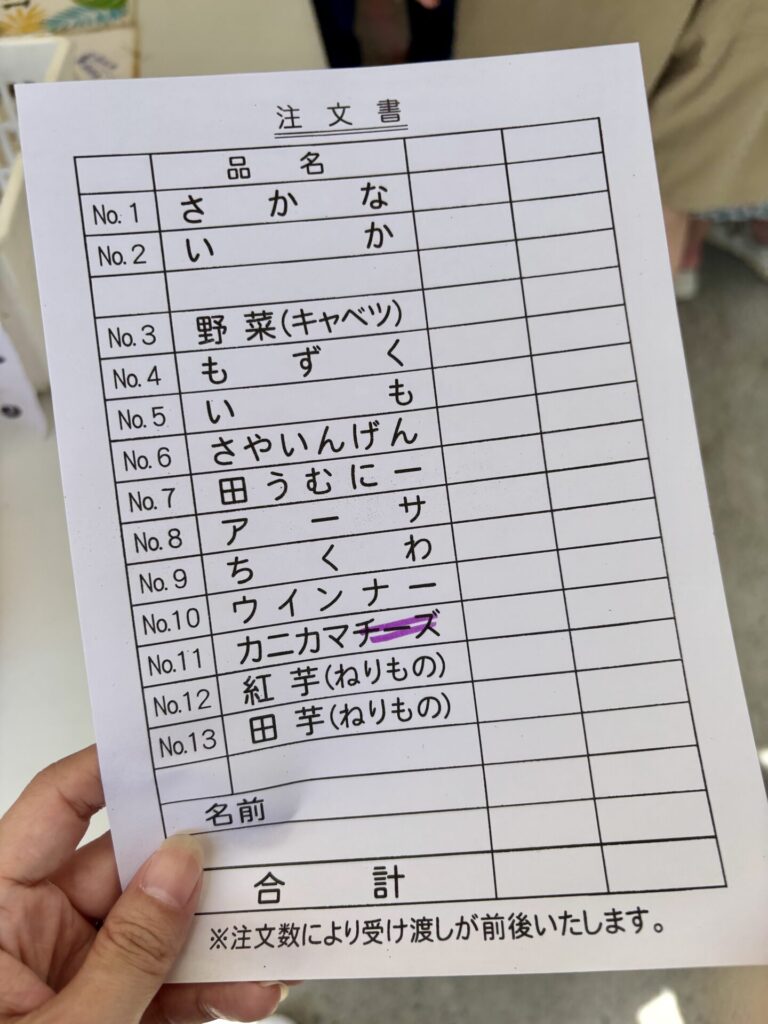 注文書
品名
No.1 さかな
No.2 いか
No.3 野菜(キャベツ)
No.4 もずく
No.5 いも
No.6 さやいんげん
No.7 田うむにー
No.8 アーサ
No.9 ちくわ
No.10 ウインナー
No.11 カニカマチーズ
No.12 紅芋(ねりもの)
No.13 田芋(ねりもの)
名前
合計
※注文数により受け渡しが前後いたします。